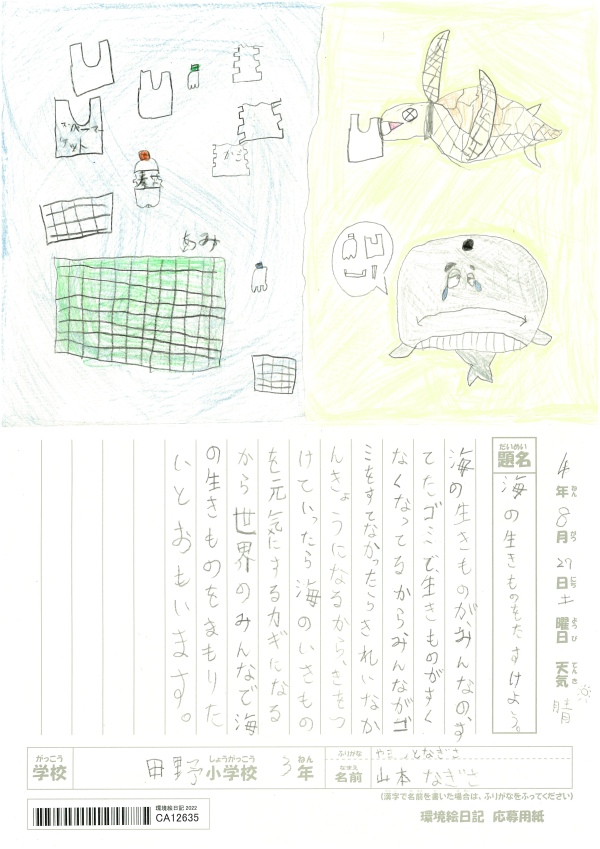 スーパーマー
ケット
かご
麦せ
あみ
4年8月27日土曜日 天気 晴
ねん がつ にち ようび てんき
だいめい
題名
海の生きものをたすけよう。
海の生きものが、みんなの、す
てたゴミで、生きものがすく
なくなってるからみんながゴ
ミをすてなかったらきれいなか
んきょうになるから、きをつ
けていったら海のいきもの
を元気にするカギになる
から世界のみんなで海
の生きものをまもりた
いとおもいます。
がっこう
学校
田野小学校 3年
しょうがっこう ねん
ふりがな
なまえ
名前
山本 なぎさ
(漢字で名前を書いた場合は、ふりがなをふってください)
環境絵日記 2022
CA12635
環境絵日記 応募用紙